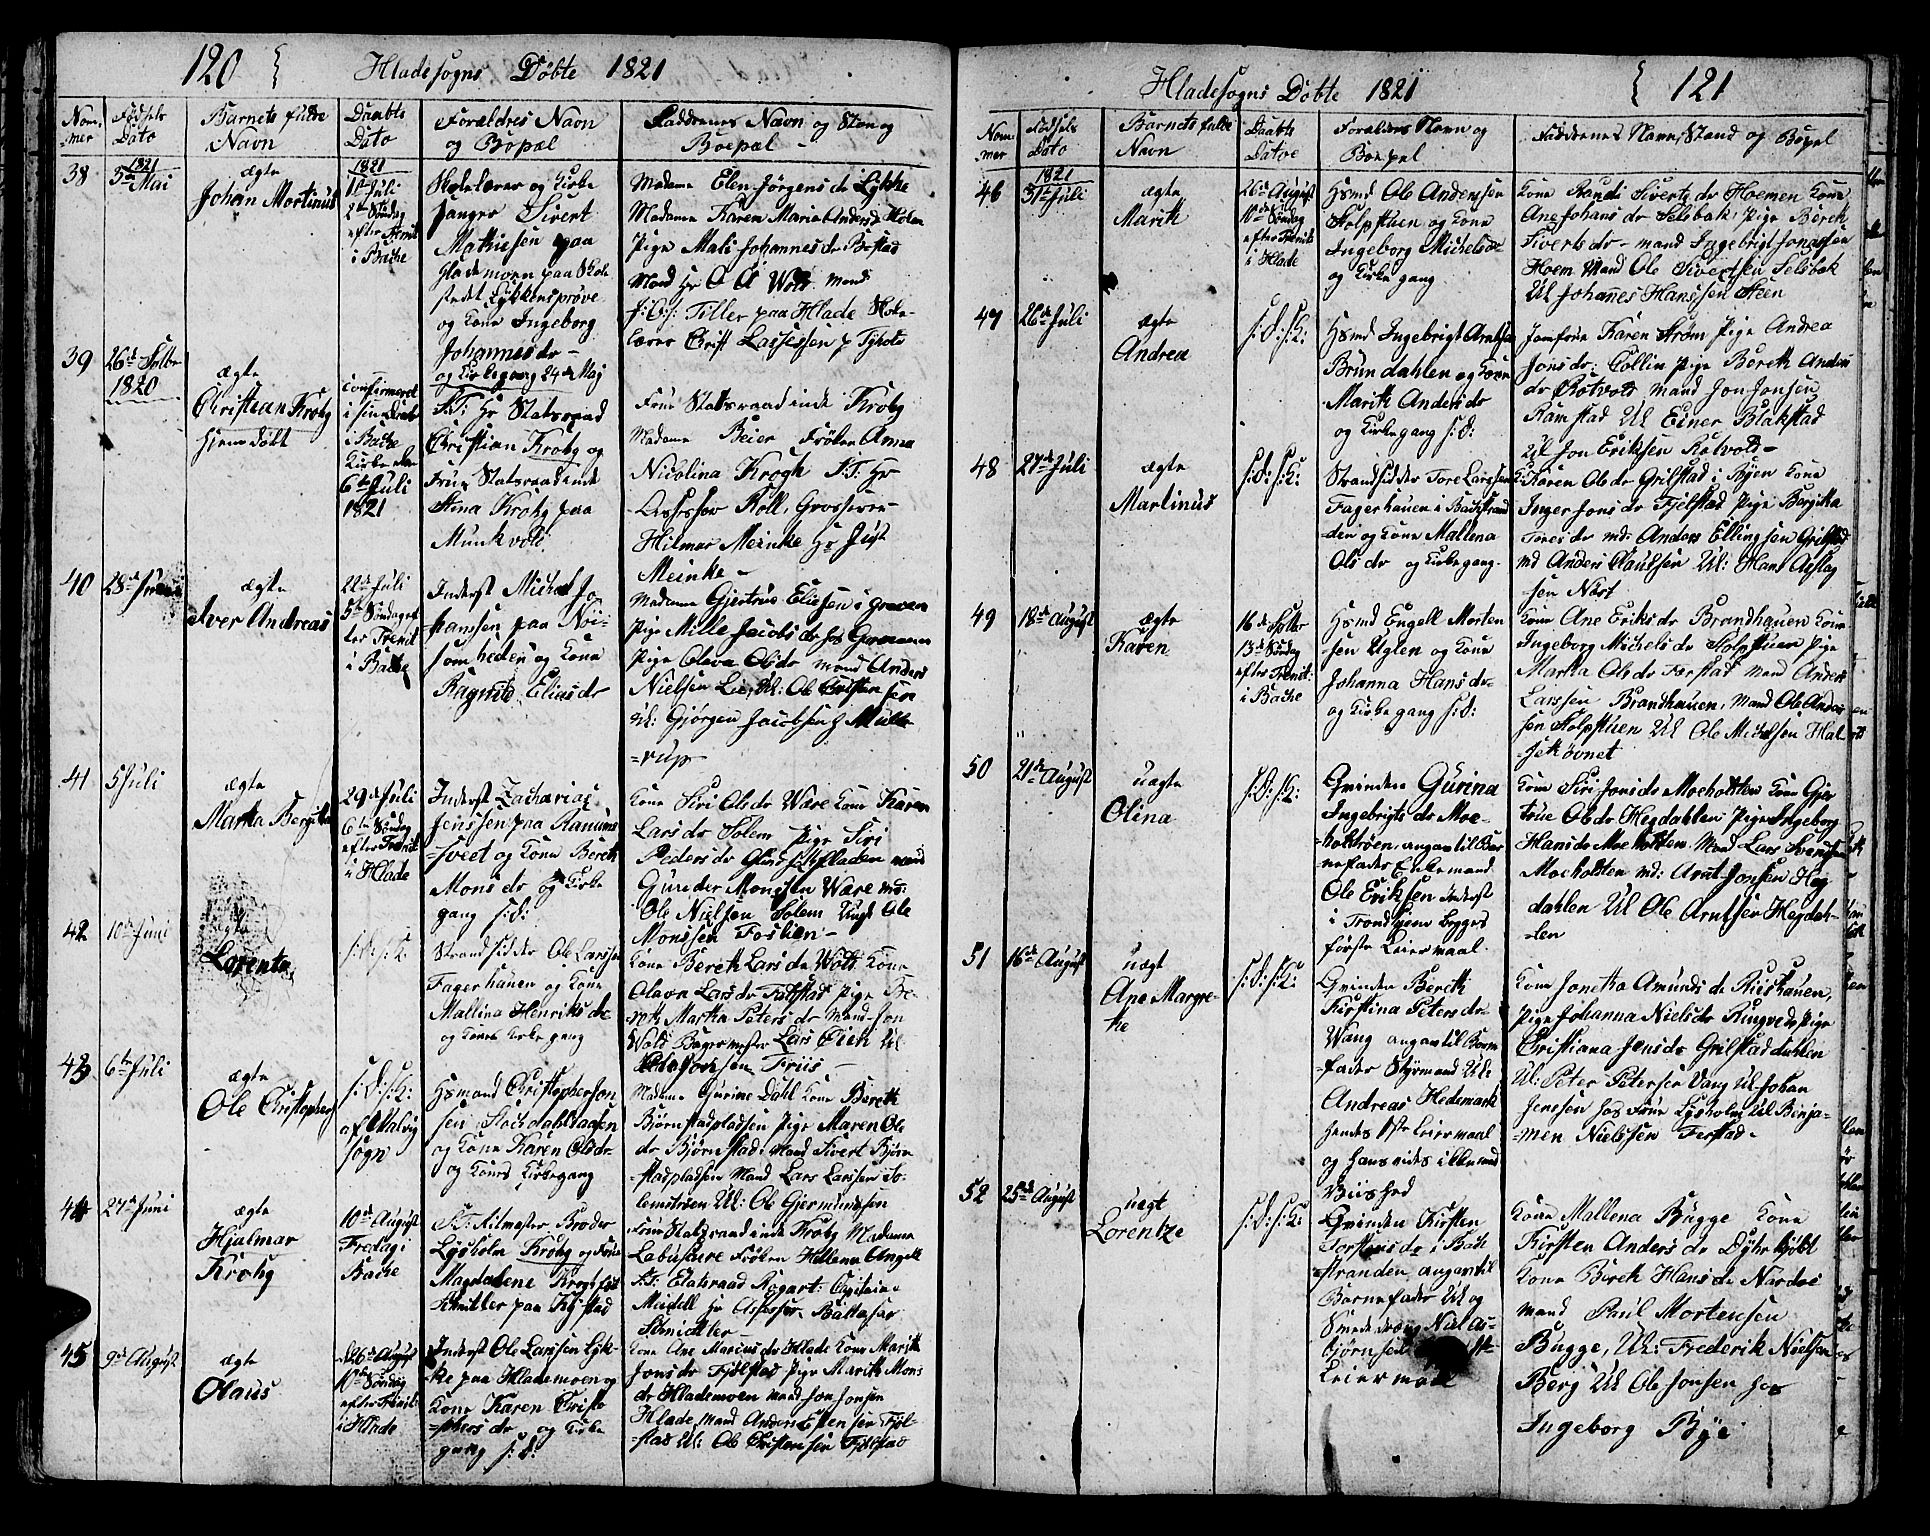 120 Hladesogns Døbte 1821
Nom-
mer
Fødsels
Dato
Barnets fulde
Navn
Daabs
Dato
Forældres Navn
og Bopæl
Faddernes Navn og Stan og
Boepæl
38
1821
5te Mai
ægte
Johan Martinus
1821
1ste Juli
2den Søndag
efter Trenit
i Bache
Skolelærer og Kirke
sanger Sivert
Mathiesen paa
Hlademoen paa Skole
stedet Lykkensprøve
og Kone Ingeborg
Johannesdr -
og Kirkegang 24de Maj
Madame Elen Jørgensdr Lykke
Madame Karen Maria Andersdr Holem
Pige Mali Johannesdr Bostad
Mand Hr O A Wold Mand
J: C: J: Tiller paa Hlade Skole-
lærer Christ Lassessen p Tyholt
39
26de Septbr
1820
ægte
Christian Krohg
hjemdøbt
confirmeret
i sin Daab
i Bache
Kirke den
6te Juli
1821
S:T: Hr Statsraad
Christian Krohg og
Frue Statsraadinde
Stina Krohg paa
Munkvold
Frue Statsraadinde Krohg
Madame Beier Frøken Anna
Nicolina Krogh S:T: Hr
Assessor Roll, Grosserer
Hilmar Meinke Hr Just
Meinke -
40
28de Juni
ægte
Iver Andreas
22de Juli
5te Søndag ef
ter Trenit
i Bache
Inderst Michel Jo
hanssen paa Voi-
somheden og Kone
Ragnild Eliasdr
Madame Gjertrue Eliesen i Graven
Pige Mille Jacobsdr hos Garmann
Pige Olava Olsdr Mand Anders
Nielsen Lie, Ul: Ole Ellefsen sen
Ul: Gjørgen Jacobsen p Mulle
-rup -
41
5 Juli
ægte
Marta Bergitta
29de Juli
6te Søndag
efter Trenit
i Hlade
Inderst Zacharias
Jenssen paa Ranums
-sveet og Kone Bereth
Monsdr og Kirke
gang s:D:
Kone Siri Olsdr Wære Kone Karen
Larsdr Solem Pige Siri
Pedersdr Hladen Mand
Guneder Monssen Wære Md:
Ole Nielsen Solem Ungk Ole
Monssen Foslien -
42
10de Juni
ægte
Lorenta
s:D: s:K:
Strandsidder Ole Larssen
Fagerhauen og Kone
Mallina Henriksdr
og Kones Kirkegang
Kone Bereth Larsdr Wold Kone
Olava Larsdr Falstad Pige Be-
reth Martha Petersdr Mand Jon
Wold Bagermester Lars Eich Ul
Friis -
43
6te Juli
ægte
Ole Christopher
s:D: s:K:
af Malvig
sogn
Hsmand Christopherson
sen Stoksdahlsaasen
og Kone Karen Olsdr
og Kones Kirkegang
Madame Gurine Dahl Kone Bereth
Bjørnstadpladsen Pige Maren Ols
dr Bjørnstad, Mand Sivert Bjørn
-stadpladsen Mand Lars Larssen So-
lemstrøen Ul: Ole Gjermundsen
44
27de Juni
ægte
Hjalmar
Krohg
10de August
Fredag i
Bache
S:T: Ritmester Broder
Lysholm Krohg og Frue
Magdalene Krogh født
Schnitler paa Rystad
Frue Statsraadinde Krohg Madame
Labuhare Frøken Hellena Angell
S:T: Etatsraad Rogert: Capitaine
Mindell Hr Assessor Baltasar
Schnidtler -
45
9de August
ægte
Olaus
26de August
10de Søndag
efter Trenit
i Hlade
Inderst Ole Larssen Lyk-
ke paa Hlademoen og
Kone Karen Christo
-phersdr og Kirke
gang s:D:
Kone Ane Mariusdr Hlade Kone Marith
Jonsdr Fjølstad Pige Marith Mons
dr Hlademoen Mand Jon Jonsen
Hlade, Mand Anders Ellensen Fjøl-
-stad Ul: Ole Christensen Fjølstad
Hladesogns Døbte 1821 121
Nom-
mer
Fødsels
Dato
Barnets fulde
Navn
Daabs
Datoe
Forældres Navn og
Boepel
Faddernes Navn, Stand og Bopel
46
1821
31te Juli
ægte
Marith
26de August
10de Søndag
efter Trenit
i Hlade
Hsmd Ole Anderssen
Stolpstuen og Kone
Ingeborg Michelsdr
og Kirkegang
Kone Randi Sivertsdr Hoemen Kone
Ane Johansdr Selsbak Pige Bereth
Sivertsdr - Mand Ingebrigt Jonassen
Hoem Mand Ole Sivertsen Selsbak
Ul Johannes Hanssen Steen
47
26de Juli
ægte
Andrea
s:D: s:K:
Hsmd Ingebrigt Arntsen
Brundahlen og Kone
Marith Andersdr
og Kirkegang s:D:
Jomfrue Karen Strøm Pige Andrea
Jonsdr Collin Pige Bereth Anders
dr Rotvold Mand Jon Jonsen
Ramstad Ul Einer Blakstad
Ul Jon Eriksen Rotvold -
48
27de Juli
ægte
Martinus
s:D: s:K:
Strandsidder Tore Larssen
Fagerhauen i Bachstran
-den og Kone Mallena
Olsdr og Kirkegang -
K: Karen Olsdr Grilstad i Byen Kone
Inger Jonsdr Fjelstad Pige Bergitta
Toresdr Md: Anders Ellingsen Grilstad
Md Anders Knudsen Ul: Hans Aslag
sen Nøst
49
18de August
ægte
Karen
16de Septbr
13de Søndag
efter Trenit:
i Bache
Hsmd Engell Morten
sen Uglen og Kone
Johanna Hansdr
og Kirkegang s:D:
Kone Ane Eriksdr Brandhauen Kone
Ingeborg Michelsdr Stolpstuen Pige
Martha Olsdr Ferstad Mand Anders
Larssen Brandhauen, Mand Ole Anders
sen Stolpstuen Ul Ole Michelsen Hal-
sethøvnet
50
21de August
uægte
Olina
s:D: s:K:
Qvinden Gurina
Ingebrigtsdr Moe-
holtrøen, angav til Bar
nefader Enkemand
Ole Eriksen Inderst
i Trondhjem begges
første Leiermaal
Kone Siri Jonsdr Moeholtten Kone Gjer
true Olsdr Hegdahlen Pige Ingeborg
Hansdr Moeholtten, Mand Lars Svendsen
Moeholtten Md: Arnt Jonsen Heg
dahlen Ul Ole Arntsen Hegdah-
-len
51
16de August
uægt
Ane Margre-
the
s:D: s:K:
Qvinden Bereth
Kirstina Petersdr
Wang angav til Barne
-fader Styrmand Ul:
Andreas Hedemark
hendes 1ste Leiermaal
og hans vides ikke med
Vished
Kone Jonetha Amundsdr Riishauen,
Pige Johanna Nielsdr Ringved, Pige
Christiana Jonsdr Grilstaddahlen
Ul: Peter Petersen Vang Ul Johan
Jenssen hos Frue Lysholm Ul Benja-
-men Nielssen Ferstad -
52
25de August
uægt
Lorentze
s:D: s:K:
Qvinden Kirsten
Torstensdr i Bak
stranden angav til
Barnefader Ul og
Smededreng Nils As-
bjørnsen
Leiermaal
Kone Mallena Bugge Kone
Kirsten Andersdr Dyhrkjøbt
Kone Bereth Hansdr Nardøe
Mand Paul Mortensen
Bugge, Ul: Frederik Nielsen
Berg Ul Ole Jonsen hos
Ingeborg Bye